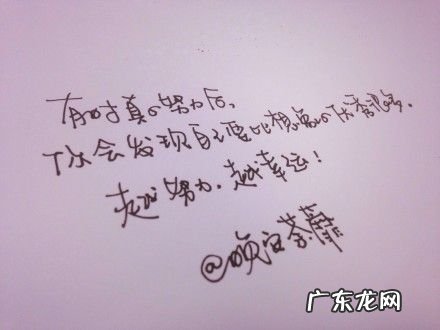 有时真的努力后，
你会发现自己要比想象的优秀很多．
越努力．越幸运！
@晚安荼蘼
广东龙网